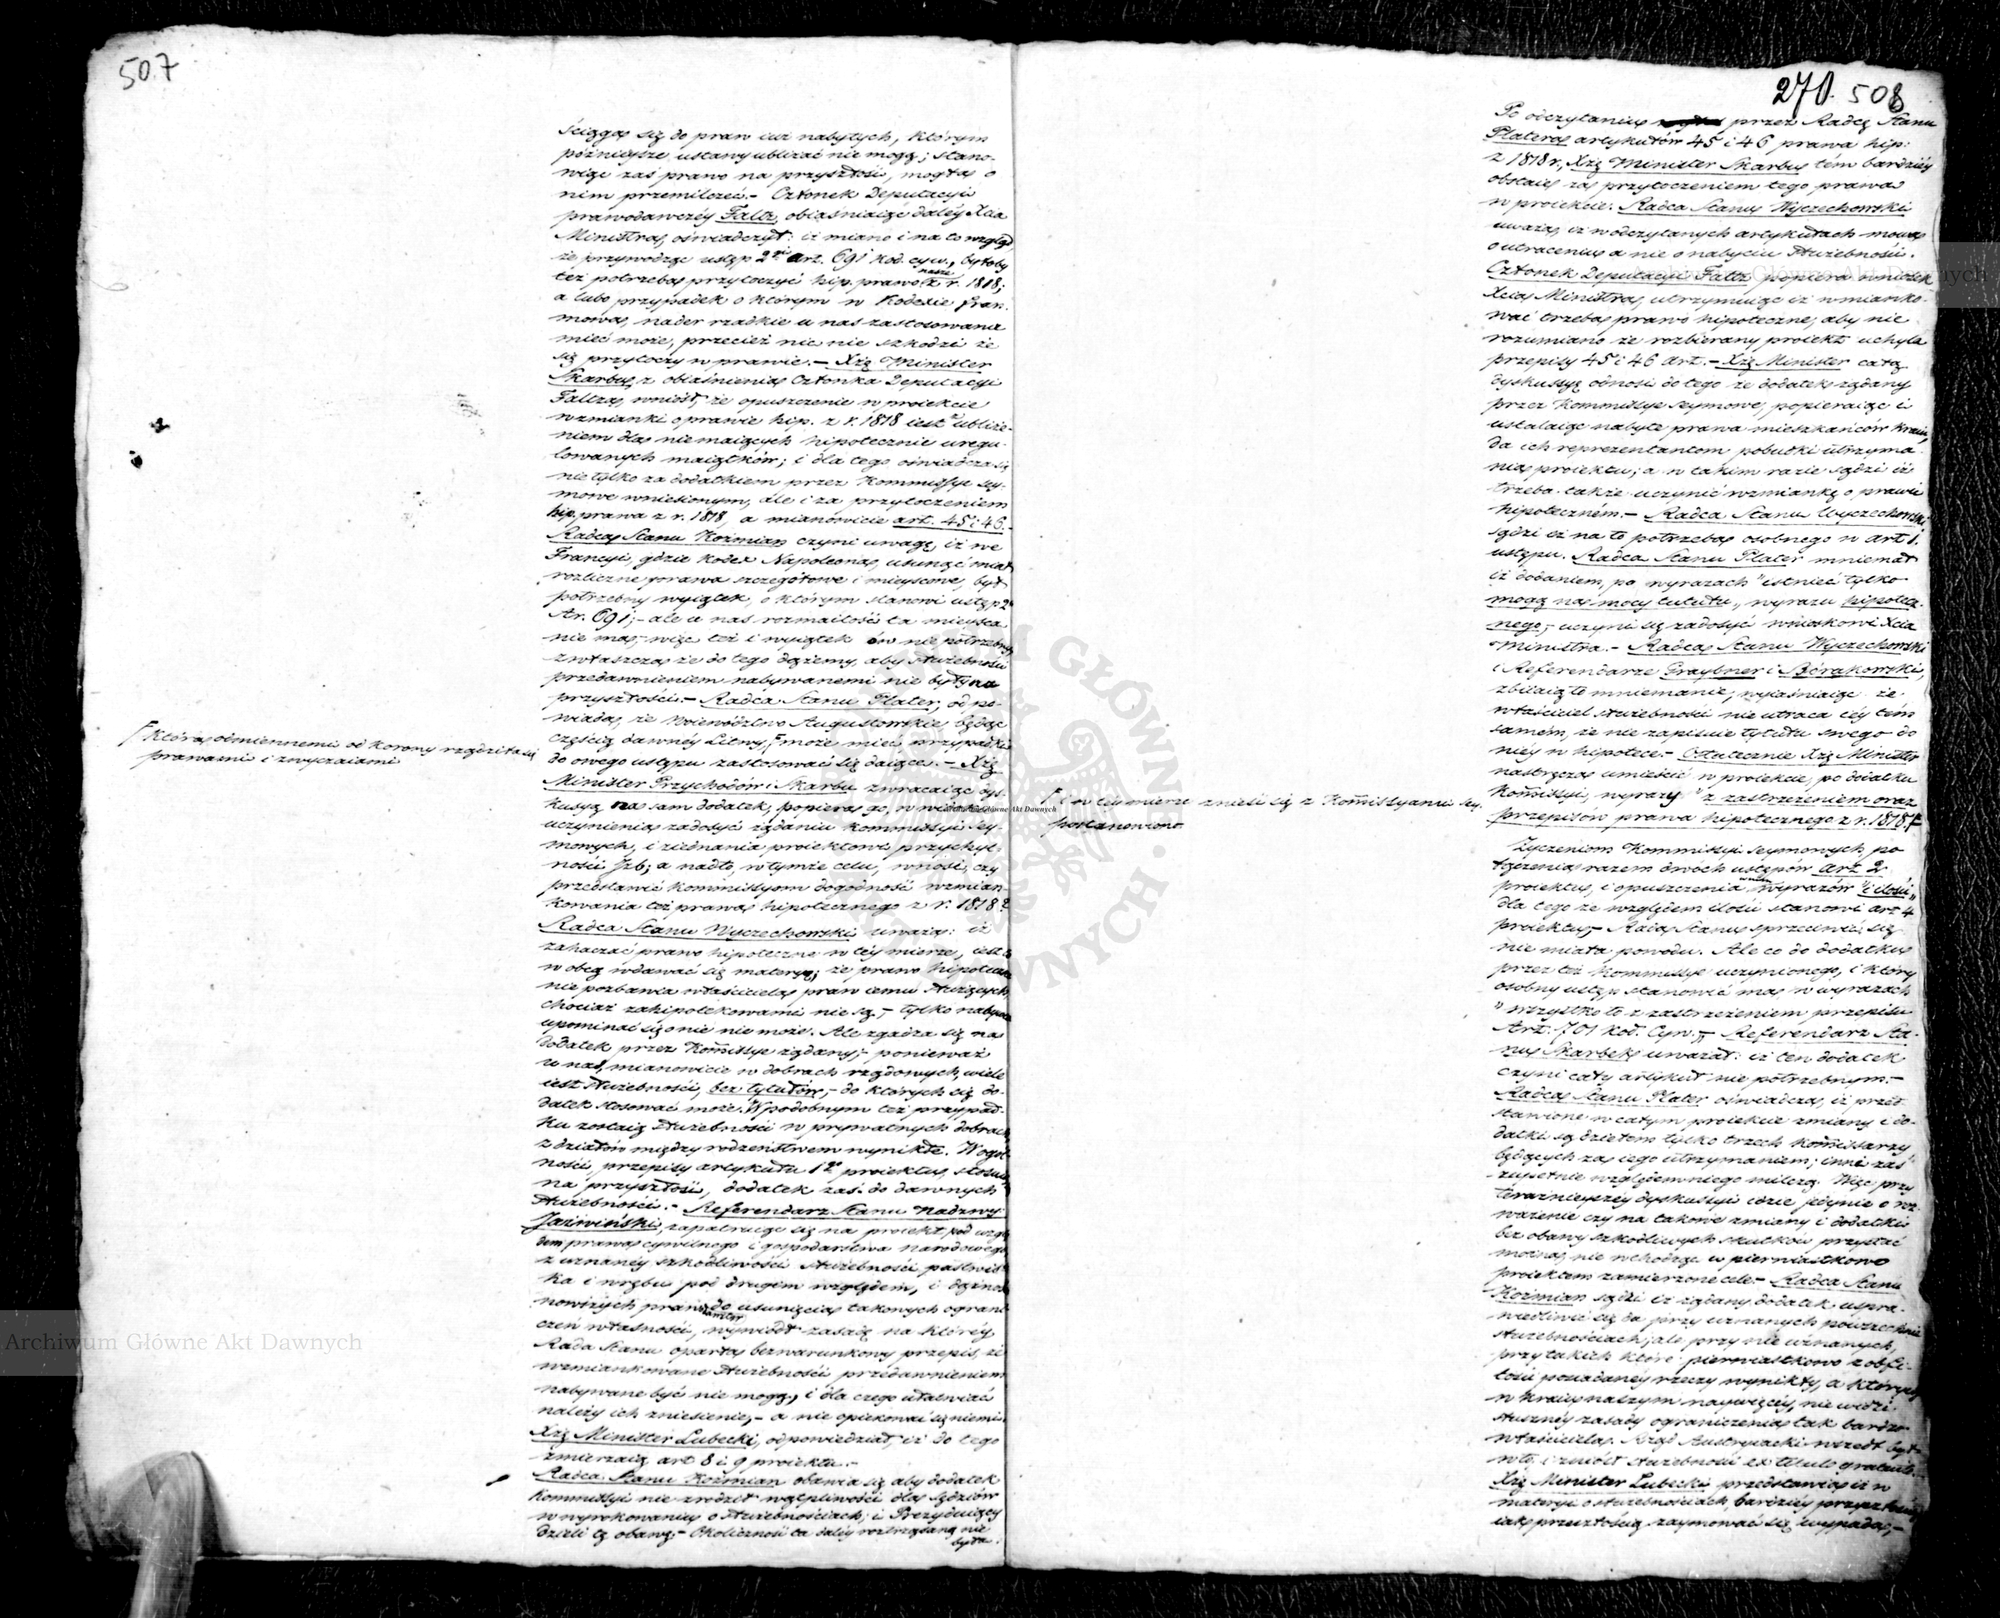 507
ściągają się do praw iuż nabytych, którym
późnieysze ustawy ubliżać nie mogą; stano-
wiąc zaś prawo na przyszłość, mogła o
nim przemilczeć. – Członek Deputacyi
prawodawczéy Faltz, obiaśniaiąc daléy Xcia
Ministra, oświadczył: iż miano i na to wzgląd,
że przywodząc ustęp 2gi art. 691 kod. cyw., byłoby
też potrzeba przytoczyć hip. prawo nasze z r. 1818;
a lubo przypadek o którym w Kodexie fran.
mowa, nader rzadkie u nas zastosowanie
mieć może, przecież nic nie szkodzi że
się przytoczy w prawie. – Xżę Minister
Skarbu, z obiaśnienia Członka Deputacyi
Faltza, wniósł, że opuszczenie w proiekcie
wzmianki o prawie hip. z r. 1818 iest ubliże-
niem dla nie maiących hipotecznie uregu-
lowanych maiątków; i dla tego oświadcza się
nie tylko za dodatkiem przez Kommissye Sey-
mowe wniesionym, ale i za przytoczeniem
hip. prawa z r. 1818, a mianowicie art. 45 i 46. –
Radca Stanu Koźmian czyni uwagę, iż we
Francyi, gdzie Kodex Napoleona, usunąć miał
rozliczne prawa szczegółowe i mieyscowe, był
potrzebny wyiątek, o którym stanowi ustęp 2
Ar. 691; – ale u nas rozmaitość ta mieysca
nie ma; – więc też i wyiątek ów nie potrzebny,
zwłaszcza że do tego dążemy, aby służebności
przedawnieniem nabywanemi nie były na
przyszłość. – Radca Stanu Plater, odpo-
wiada, że Woiewództwo Augustowskie, będąc
częścią dawnéy Litwy, F może mieć przypadki
do owego ustępu zastosować się daiące. – Xżę
F Która odmiennemi od Korony rządziła się
prawami i zwyczaiami
Minister Przychodów i Skarbu zwracaiąc dys-
kusyą na sam dodatek, popiera go, w widokach
uczynienia zadosyć żądaniu Kommissyi Sey-
mowych, i ziednania proiektowi przychyl-
ności Izb; a nadto, w tymże celu, wnosi, czy
przedstawić Kommissyom dogodność wzmian-
kowania też prawa hipotecznego z r. 1818?
Radca Stanu Wyczechowski uważa: iż
zahaczać prawo hipoteczne w téy mierze, iest
w obcą wdawać się materyą; że prawo hipoteczne
nie pozbawia właściciela praw iemu służących,
chociaż zahipotekowanemi nie są, – tylko nabywca
upominać się o nie nie może. Ale zgadza się na
dodatek przez Kommissye żądany; – ponieważ
u nas, mianowicie w dobrach rządowych, wiele
iest służebności, bez tytułów, – do których się do-
datek stosować może. W podobnym też przypad-
ku zostaią służebności w prywatnych dobrach,
z działów między rodzeństwem wynikłe. W ogól-
ności, przepisy artykułu 1go proiektu, stosuią
na przyszłość, dodatek zaś do dawnych
służebności. – Referendarz Stanu Nadzwy:
Jaźwiński, zapatruiąc się na proiekt pod wzglę-
dem prawa cywilnego i gospodarstwa narodowego,
z uznanéy szkodliwości służebności pastwis-
ka i wrębu pod drugim względem, i dążno-
nowszych praw do usunięcia takowych ograni-
czeń własności, wywiódł zasadę na któréy
Rada Stanu oparta bezwarunkowy przepis, że
wzmiankowane służebności przedawnieniem
nabywane być nie mogą, i dla czego ułatwiać
należy ich zniesienie, – a nie opiekować się niemi.
Xżę Minister Lubecki, odpowiedział, iż do tego
zmierzaią art 8 i 9 proiektu. –
Radca Stanu Koźmian obawia się aby dodatek
Kommissyi nie zrodził wątpliwości dla sędziów
w wyrokowaniu o służebnościach; i Prezyduiący
dzieli tę obawę. – Okoliczność ta daléy roztrząsaną nie
była.
270. 508
Po odczytaniu przez Radcę Stanu
Platera artykułów 45 i 46 prawa hip:
z 1818 r., Xżę Minister Skarbu tém bardziéy
obstaie za przytoczeniem tego prawa
w proiekcie. Radca Stanu Wyczechowski
uważa, iż w odczytanych artykułach mowa
o utraceniu a nie o nabyciu służebności.
Członek Deputacyi Faltz popiera wniosek
Xcia Ministra, utrzymuiąc iż wzmianko-
wać trzeba prawo hipoteczne, aby nie
rozumiano że rozbierany proiekt uchyla
przepisy 45 i 46 art. – Xżę Minister całą
dyskussyą odnosi do tego że dodatek żądany
przez Kommissye Seymowe, popieraiąc i
ustalaiąc nabyte prawa mieszkańców kraiu,
da ich reprezentantom pobudki utrzyma-
nia proiektu; a w takim razie sądzi iż
trzeba także uczynić wzmiankę o prawie
hipoteczném. – Radca Stanu Wyczechowski
sądzi iż na to potrzeba osobnego w art 1.
ustępu. Radca Stanu Plater mniemał
iż dodaniem, po wyrazach "istnieć tylko
mogą na mocy tytułu", wyrazu hipotecz-
nego, – uczyni się zadosyć wnioskowi Xcia
Ministra. – Radca Stanu Wyczechowski
i Referendarze Graybner i Biérakowski,
zbiiaią to mniemanie, wyiaśniaiąc że
właściciel służebności nie utraca iéy tém
samém, że nie zapisuie tytułu swego do
niéy w hipotece. – Ostatecznie Xżę Minister
nastręcza umieścić w proiekcie, po dodatku
Kommissyi, wyrazy "z zastrzeżeniem oraz
przepisów prawa hipotecznego z r. 1818" F
F i w téy mierze znieść się z Kommissyami Sey.
postanowiono
Życzeniom Kommissyi Seymowych po-
łączenia razem dwóch ustępów art 2
proiektu, i opuszczenia wyrazów "i ilości"
dla tego że względem ilości stanowi art 4
proiektu, – Rada Stanu sprzeciwić się
nie miała powodu. Ale co do dodatku
przez też Kommissye uczynionego, i który
osobny ustęp stanowić ma, w wyrazach
"wszystko to z zastrzeżeniem przepisu
Art. 701 Kod. Cyw." – Referendarz Sta-
nu Skarbek uważał: iż ten dodatek
czyni cały artykuł nie potrzebnym. –
Radca Stanu Plater oświadcza, iż przed-
stawione w całym proiekcie zmiany i do-
datki są dziełem tylko trzech Kommissarzy,
będących za iego utrzymaniem; inni zaś
zupełnie względem niego milczą. Więc przy
téraźnieyszéy dyskussyi idzie iedynie o roz-
ważenie czy na takowe zmiany i dodatki
bez obawy szkodliwych skutków przystać
można, nie wchodząc w pierwiastkowo
proiektem zamierzone cele. – Radca Stanu
Koźmian sądzi iż żądany dodatek uspra-
wiedliwić się da przy uznanych powszechnie
służebnościach; ale przy nie uznanych,
przy takich które pierwiastkowo z obfi-
tości pożądanéy rzeczy wynikły, a których
w kraiu naszym naywięcéy, nie widzi
słusznéy zasady ograniczenia tak bardzo
właściciela. Rząd Austryacki wszedł był
w to i zniósł służebności ex titulo gratuito.
Xżę Minister Lubecki przedstawia, iż w
materyi o służebnościach, bardziéy przyszłością
iak przeszłością zaymować się wypada, –
Archiwum Główne Akt Dawnych